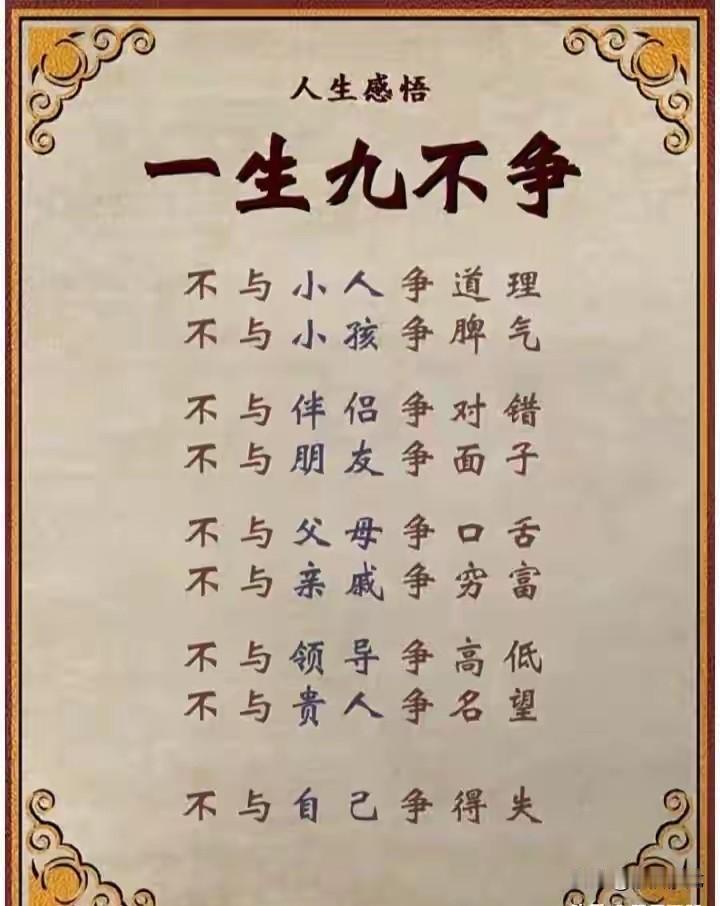 人生感悟
一生九不争
不与小人争道理
不与小孩争脾气
不与伴侣争对错
不与朋友争面子
不与父母争口舌
不与亲戚争穷富
不与领导争高低
不与贵人争名望
不与自己争得失